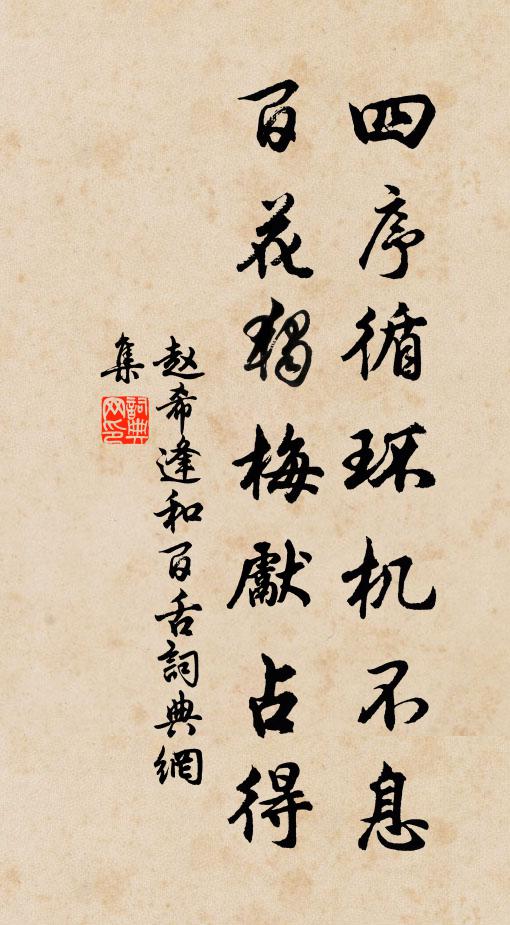 四序循环机不息
百花独梅獻占得
赵希逢和百舌詞典網
集
詞典网印